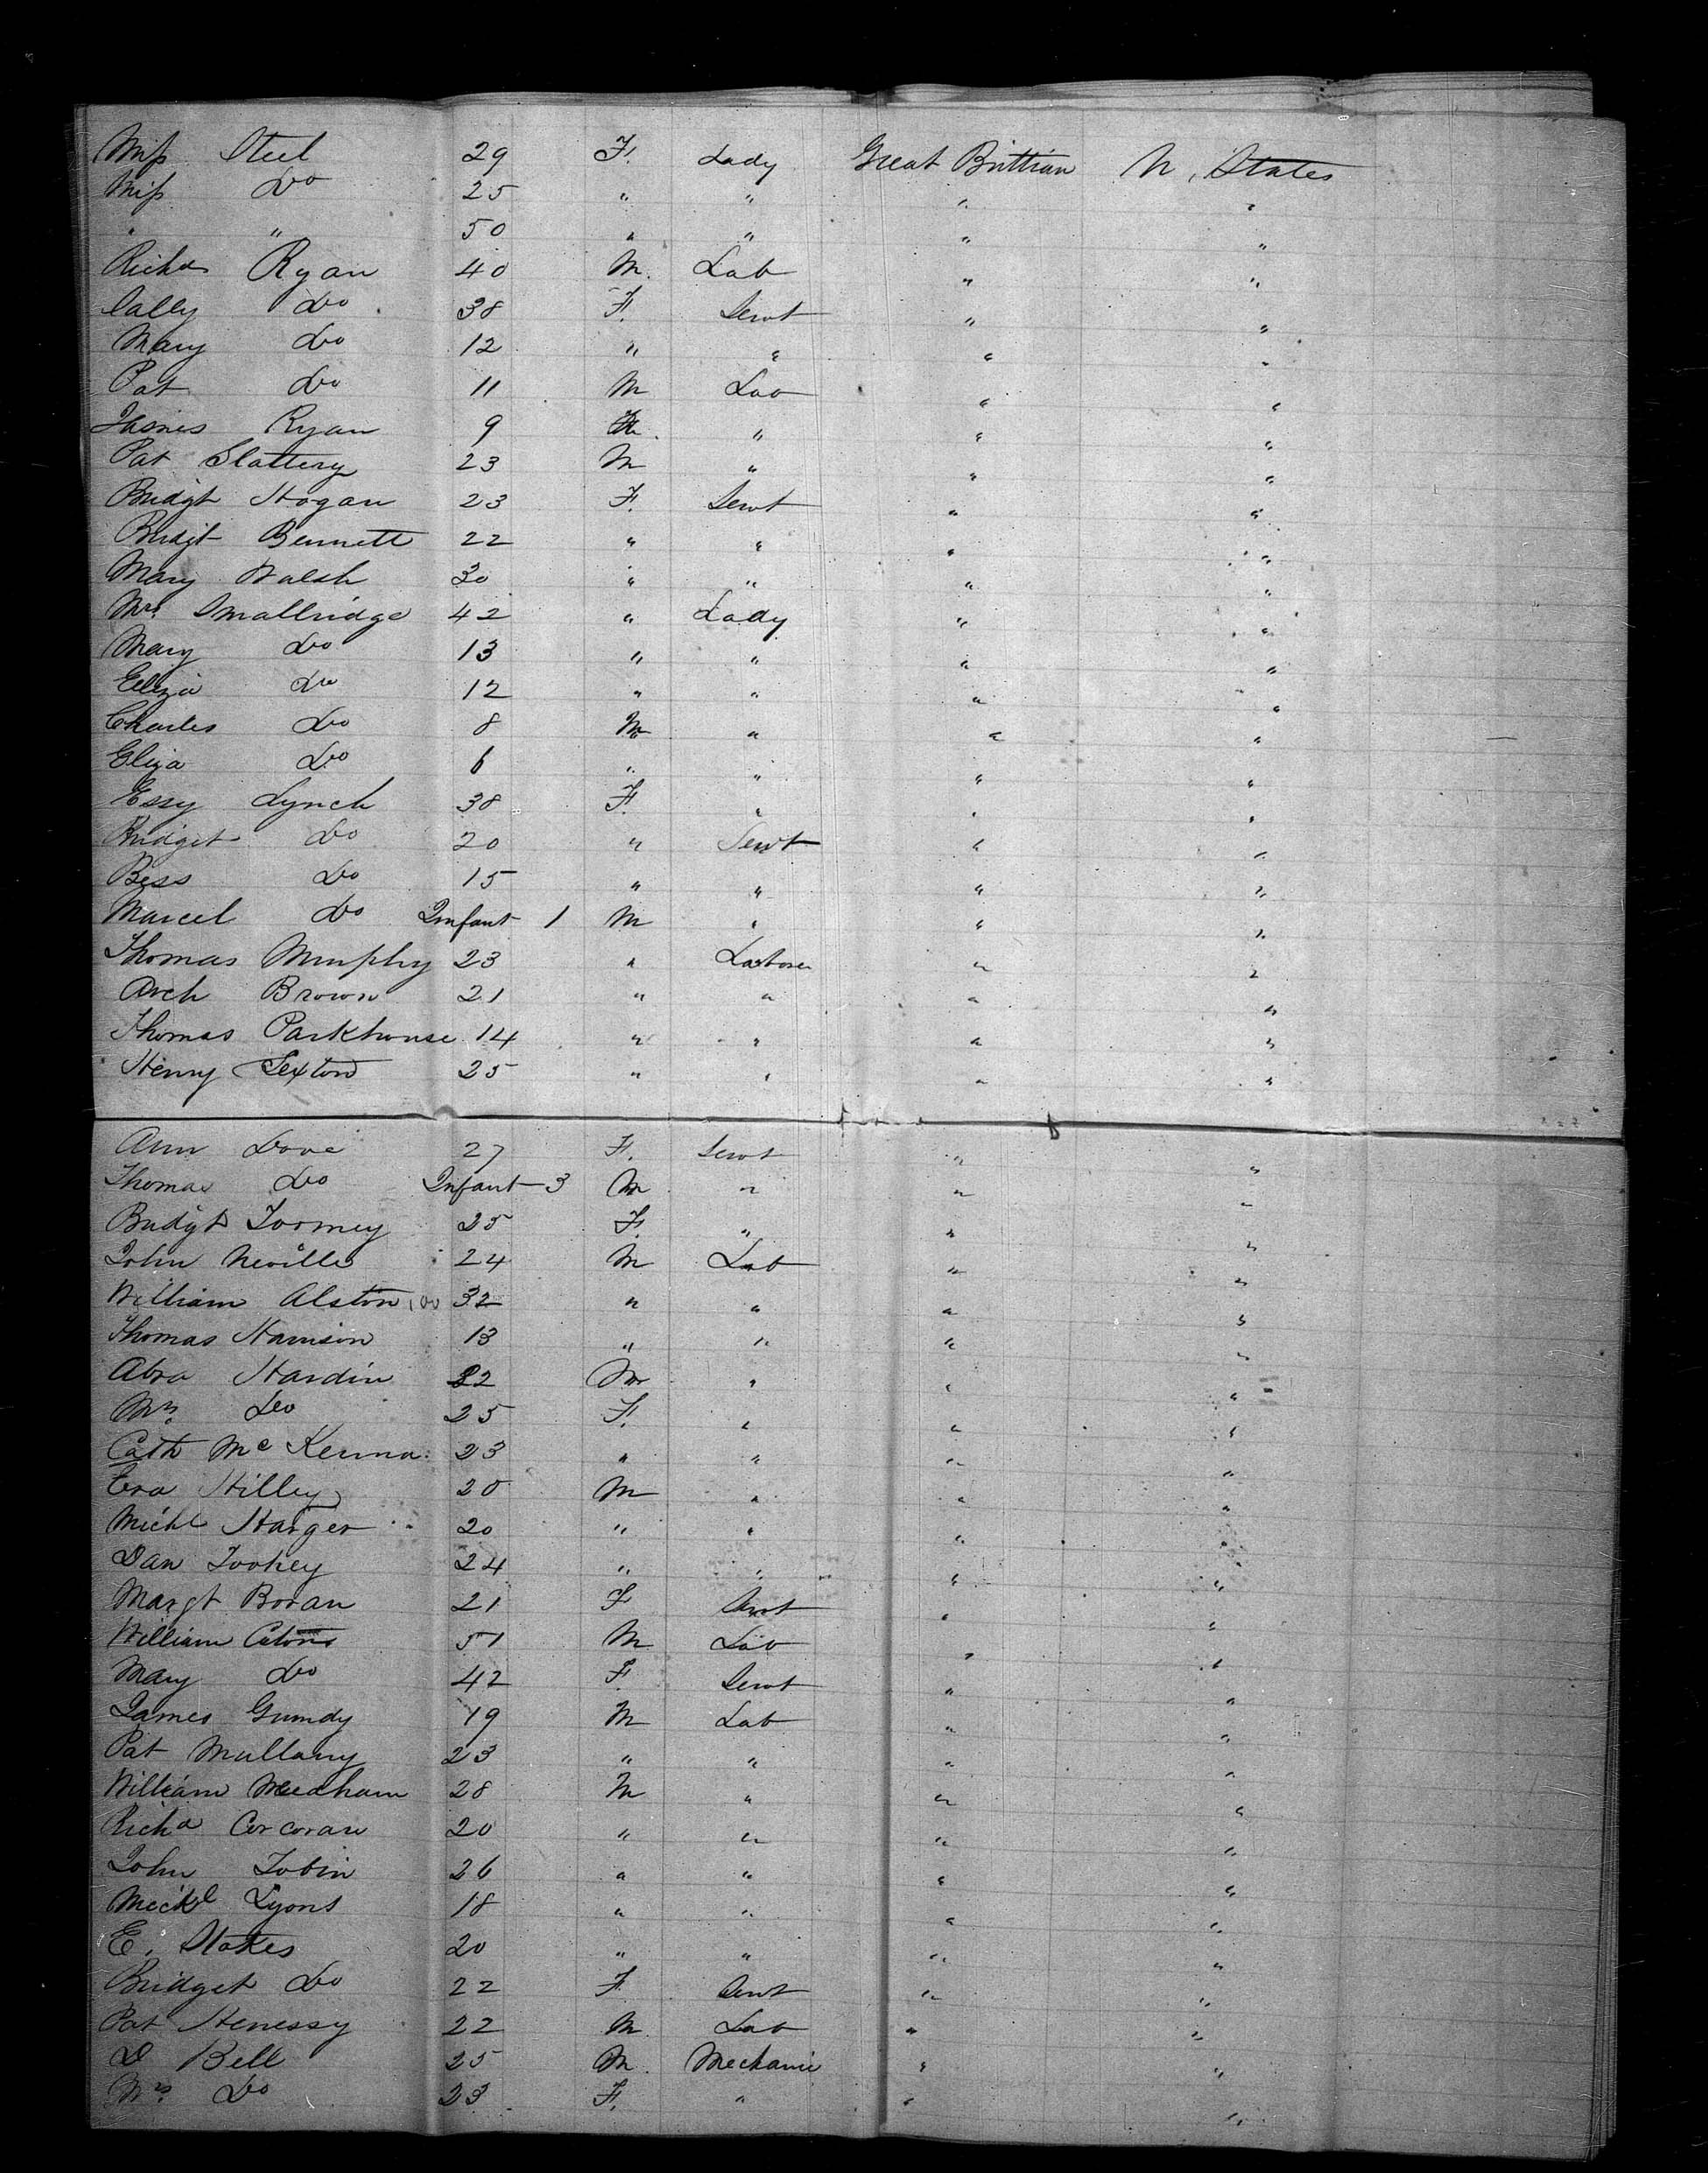 Miss Steel 29 F. Lady Great Brittian U, States
Miss Do 25 " " " "
" " 50 " " " "
Richd Ryan 40 M. Lab " "
Cally Do 38 F. Servt " "
Mary Do 12 " " " "
Pat Do 11 M Lab " "
James Ryan 9 M. " " "
Pat Slattery 23 M " " "
Bridgt Hogan 23 F. Servt " "
Bridgt Bennett 22 " " " "
Mary Walsh 30 " " " "
Mrs. Smallridge 42 " Lady " "
Mary Do 13 " " " "
Eliza Do 12 " " " "
Charles Do 8 M " " "
Eliza Do 6 " " " "
Essy Lynch 38 F. " " "
Bridget Do 20 " Servt " "
Bess Do 15 " " " "
Marcel Do Infant 1 M " " "
Thomas Murphy 23 " Laborer " "
Arch Brown 21 " " " "
Thomas Parkhouse 14 " " " "
Henry Sexton 25 " " " "
Ann Dove 27 F. Servt " "
Thomas Do Infant 3 M " " "
Bridgt Tormey 25 F. " " "
John Neville 24 M Lab " "
William Alston 32 " " " "
Thomas Harrison 13 " " " "
Abra Hardin 22 M " " "
Mrs. Do 25 F. " " "
Cath McKenna 23 " " " "
Hilley 20 M " " "
Michl Harger 20 " " " "
Dan Toohey 24 " " " "
Margt Boran 21 F Servt " "
William 51 M Lab " "
Mary Do 42 F. Servt " "
James Gumdy 19 M Lab " "
Pat Mullany 23 " " " "
William Meedham 28 M " " "
Richd Corcoran 20 " " " "
John Tobin 26 " " " "
Michl Lyons 18 " " " "
E. Stokes 20 " " " "
Bridget Do 22 F Servt " "
Pat Henessy 22 M Lab " "
D Bell 25 M. Mechanic " "
Mrs. Do 23 F. " " "